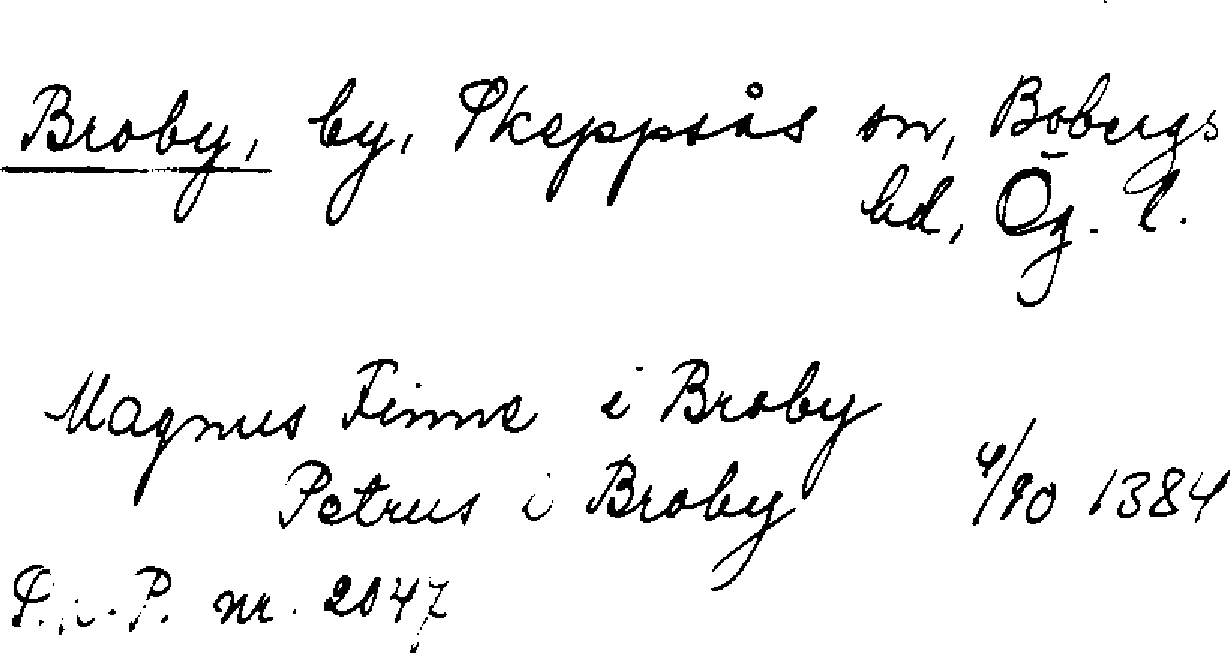 Broby, by, Skeppsås sn, Bobergs
hd, Ög. l.
Magnus Finne i Broby
Petrus i Broby 4/10 1384
P. nr. 2047